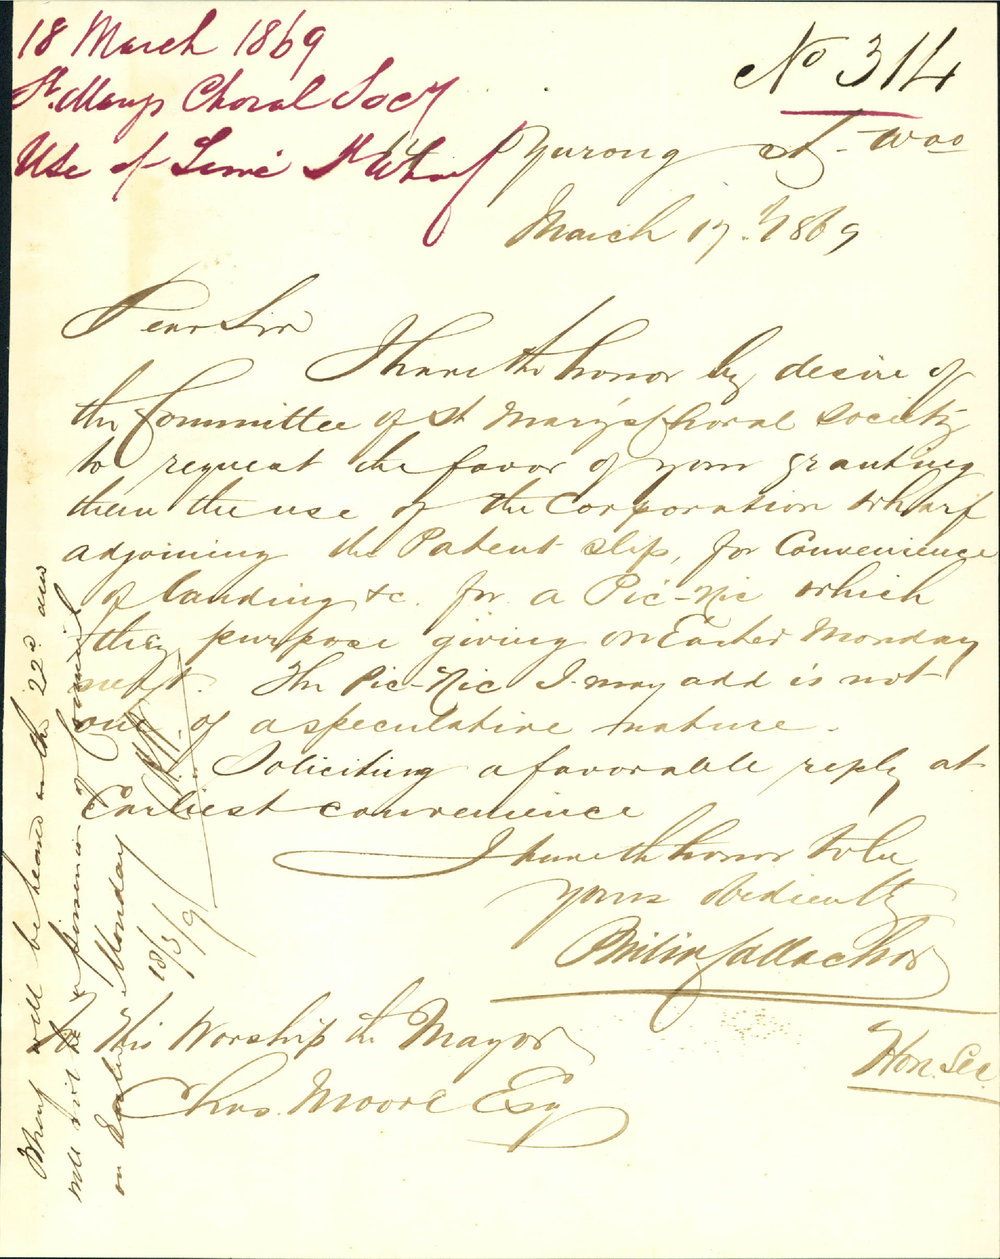 18 March 1869
St. Marys Choral Socy
Use of Lime St Wharf
No 314
14 Yurong St - Woo
March 17th 1869
Dear Sir
I have the honor by desire of
the Committee of St Mary's Choral Society
to request the favor of your granting
them the use of the Corporation Wharf
adjoining the Patent slip, for Convenience
of landing &c. for a Pic-Nic which
they purpose giving on Easter Monday
next. The Pic-Nic I may add is not
one of a speculative nature.
Soliciting a favorable reply at
Earliest convenience
I have the honor to be
Yours Obediently
Philip Gallachor
Hon. Sec.
His Worship the Mayor
Chas. Moore Esq
Wharf will be leased on the 22d and
will not be in possession of Council
on Easter Monday
18/3/9